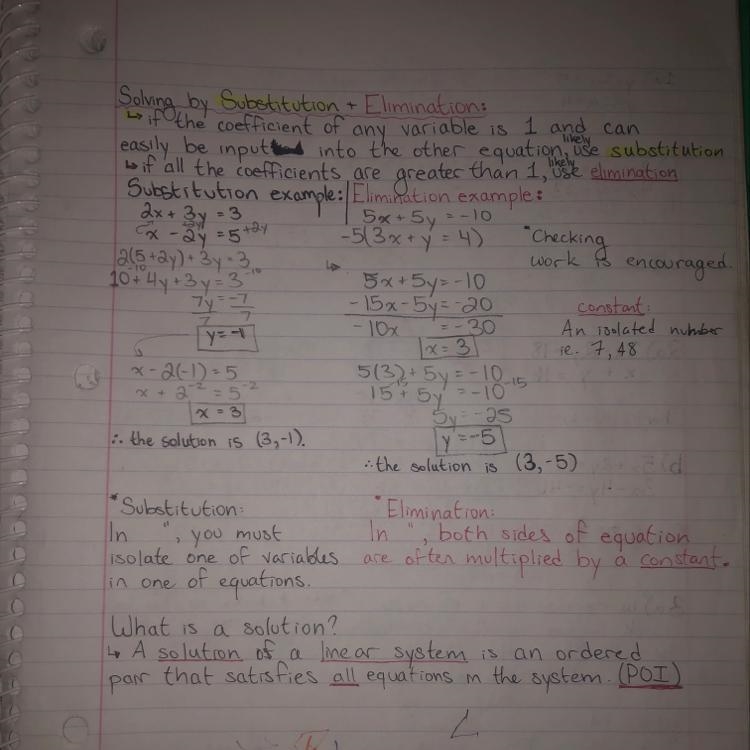 Solving by Substitution + Elimination:
↳ if the coefficient of any variable is 1 and can
easily be input into the other equation, likely use substitution
↳ if all the coefficients are greater than 1, likely use elimination
Substitution example:
2x + 3y = 3
x - 2y = 5 +2y
2(5+2y) + 3y = 3
10 + 4y + 3y = 3
-10 -10
7y = -7
7 7
y = -1
x - 2(-1) = 5
x + 2 -2 = 5 -2
x = 3
∴ the solution is (3,-1).
Elimination example:
5x + 5y = -10
-5(3x + y = 4)
↳
5x + 5y = -10
-15x - 5y = -20
-10x = -30
x = 3
5(3) + 5y = -10
15 -15 + 5y = -10 -15
5y = -25
y = -5
∴ the solution is (3,-5)
*Checking
work is encouraged.
constant:
An isolated number
ie. 7, 48
*Substitution:
In ", you must
isolate one of variables
in one of equations.
*Elimination:
In ", both sides of equation
are often multiplied by a constant.
What is a solution?
↳ A solution of a linear system is an ordered
pair that satisfies all equations in the system. (POI)